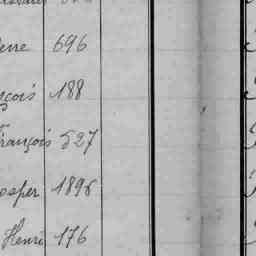 erre 696
nçois 188
François 527
osper 1896
Henri 176